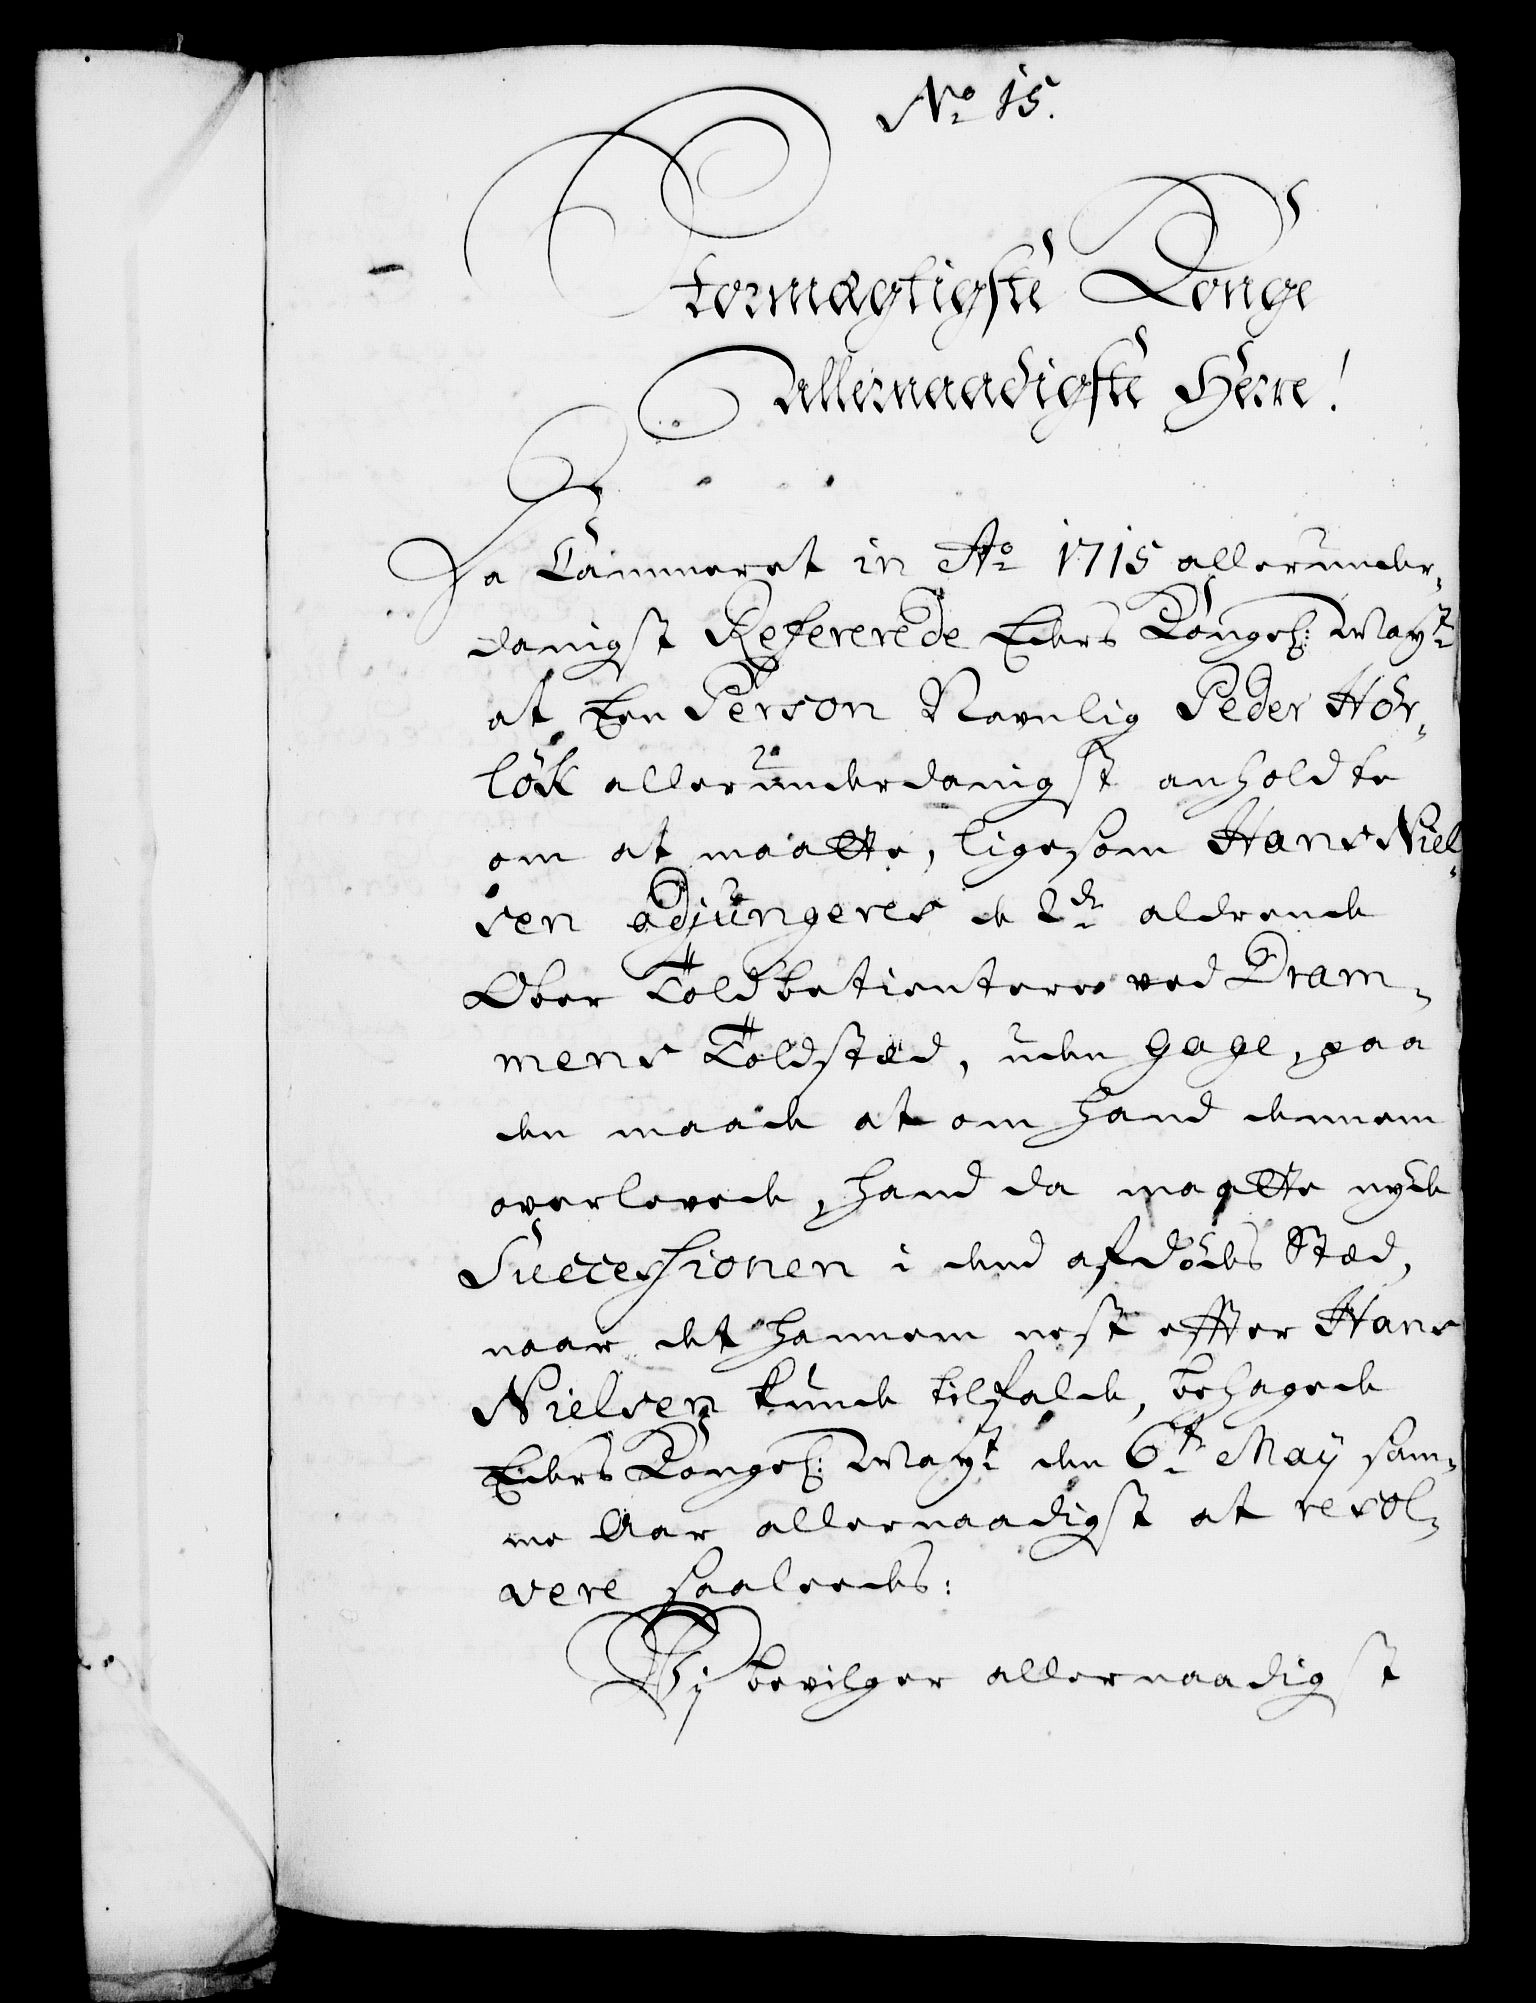 No 15.
Stormægtigste Konge
allernaadigste Herre!
Da Cammeret in Ao 1715 allerunder-
danigst Refererede Eders Kongel: Mayt
at Een Person Navnlig Peder Hör-
lök allerunderdanigst anholdte
om at maatte, ligesom Hans Niel-
sen adjungeres de 2de aldrende
Ober Toldbetientere ved Dram-
mens Toldsted, uden gage, paa
den maade at om hand dennem
overlevede, hand da maatte nyde
Successionen i dend afdödes Sted,
naar det hannem nest effter Hans
Nielsen kunde tilfalde, behagede
Eders Kongel: Mayt den 6te Maÿ sam-
me Aar allernaadigst at resol-
vere saaleedes:
Vij bevilger allernaadigst